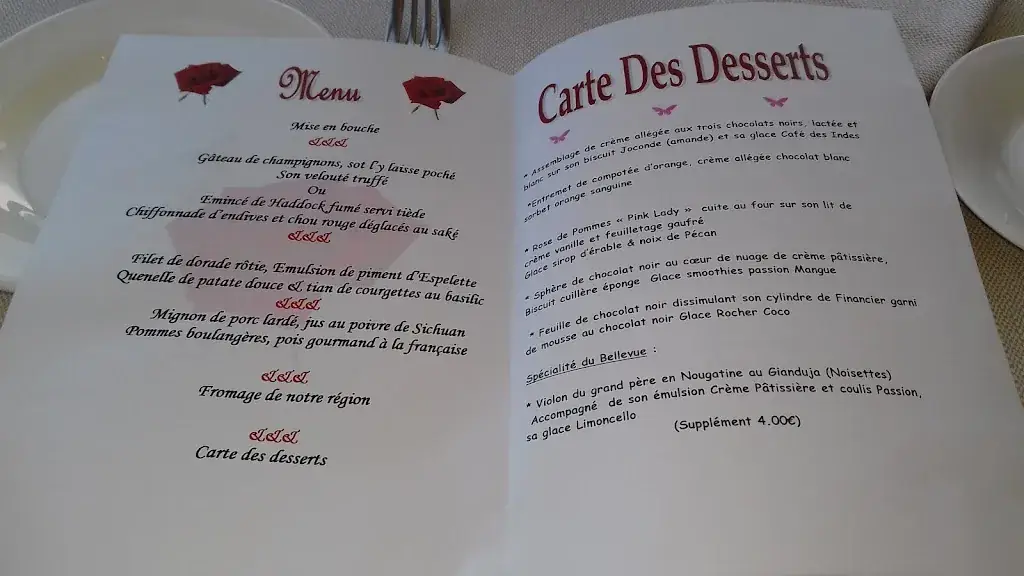 Menu
Mise en bouche
&&&
Gâteau de champignons, sot l'y laisse poché
Son velouté truffé
Ou
Emincé de Haddock fumé servi tiède
Chiffonnade d'endives et chou rouge déglacés au saké
&&&
Filet de dorade rôtie, Emulsion de piment d'Espelette
Quenelle de patate douce & tian de courgettes au basilic
&&&
Mignon de porc lardé, jus au poivre de Sichuan
Pommes boulangères, pois gourmand à la française
&&&
Fromage de notre région
&&&
Carte des desserts
Carte Des Desserts
* Assemblage de crème allégée aux trois chocolats noirs, lactée et
blanc sur son biscuit Joconde (amande) et sa glace Café des Indes
*Entremet de compotée d'orange, crème allégée chocolat blanc
sorbet orange sanguine
* Rose de Pommes « Pink Lady » cuite au four sur son lit de
crème vanille et feuilletage gaufré
Glace sirop d'érable & noix de Pécan
* Sphère de chocolat noir au cœur de nuage de crème pâtissière,
Biscuit cuillère éponge Glace smoothies passion Mangue
* Feuille de chocolat noir dissimulant son cylindre de Financier garni
de mousse au chocolat noir Glace Rocher Coco
Spécialité du Bellevue :
* Violon du grand père en Nougatine au Gianduja (Noisettes)
Accompagné de son émulsion Crème Pâtissière et coulis Passion,
sa glace Limoncello (Supplément 4.00€)